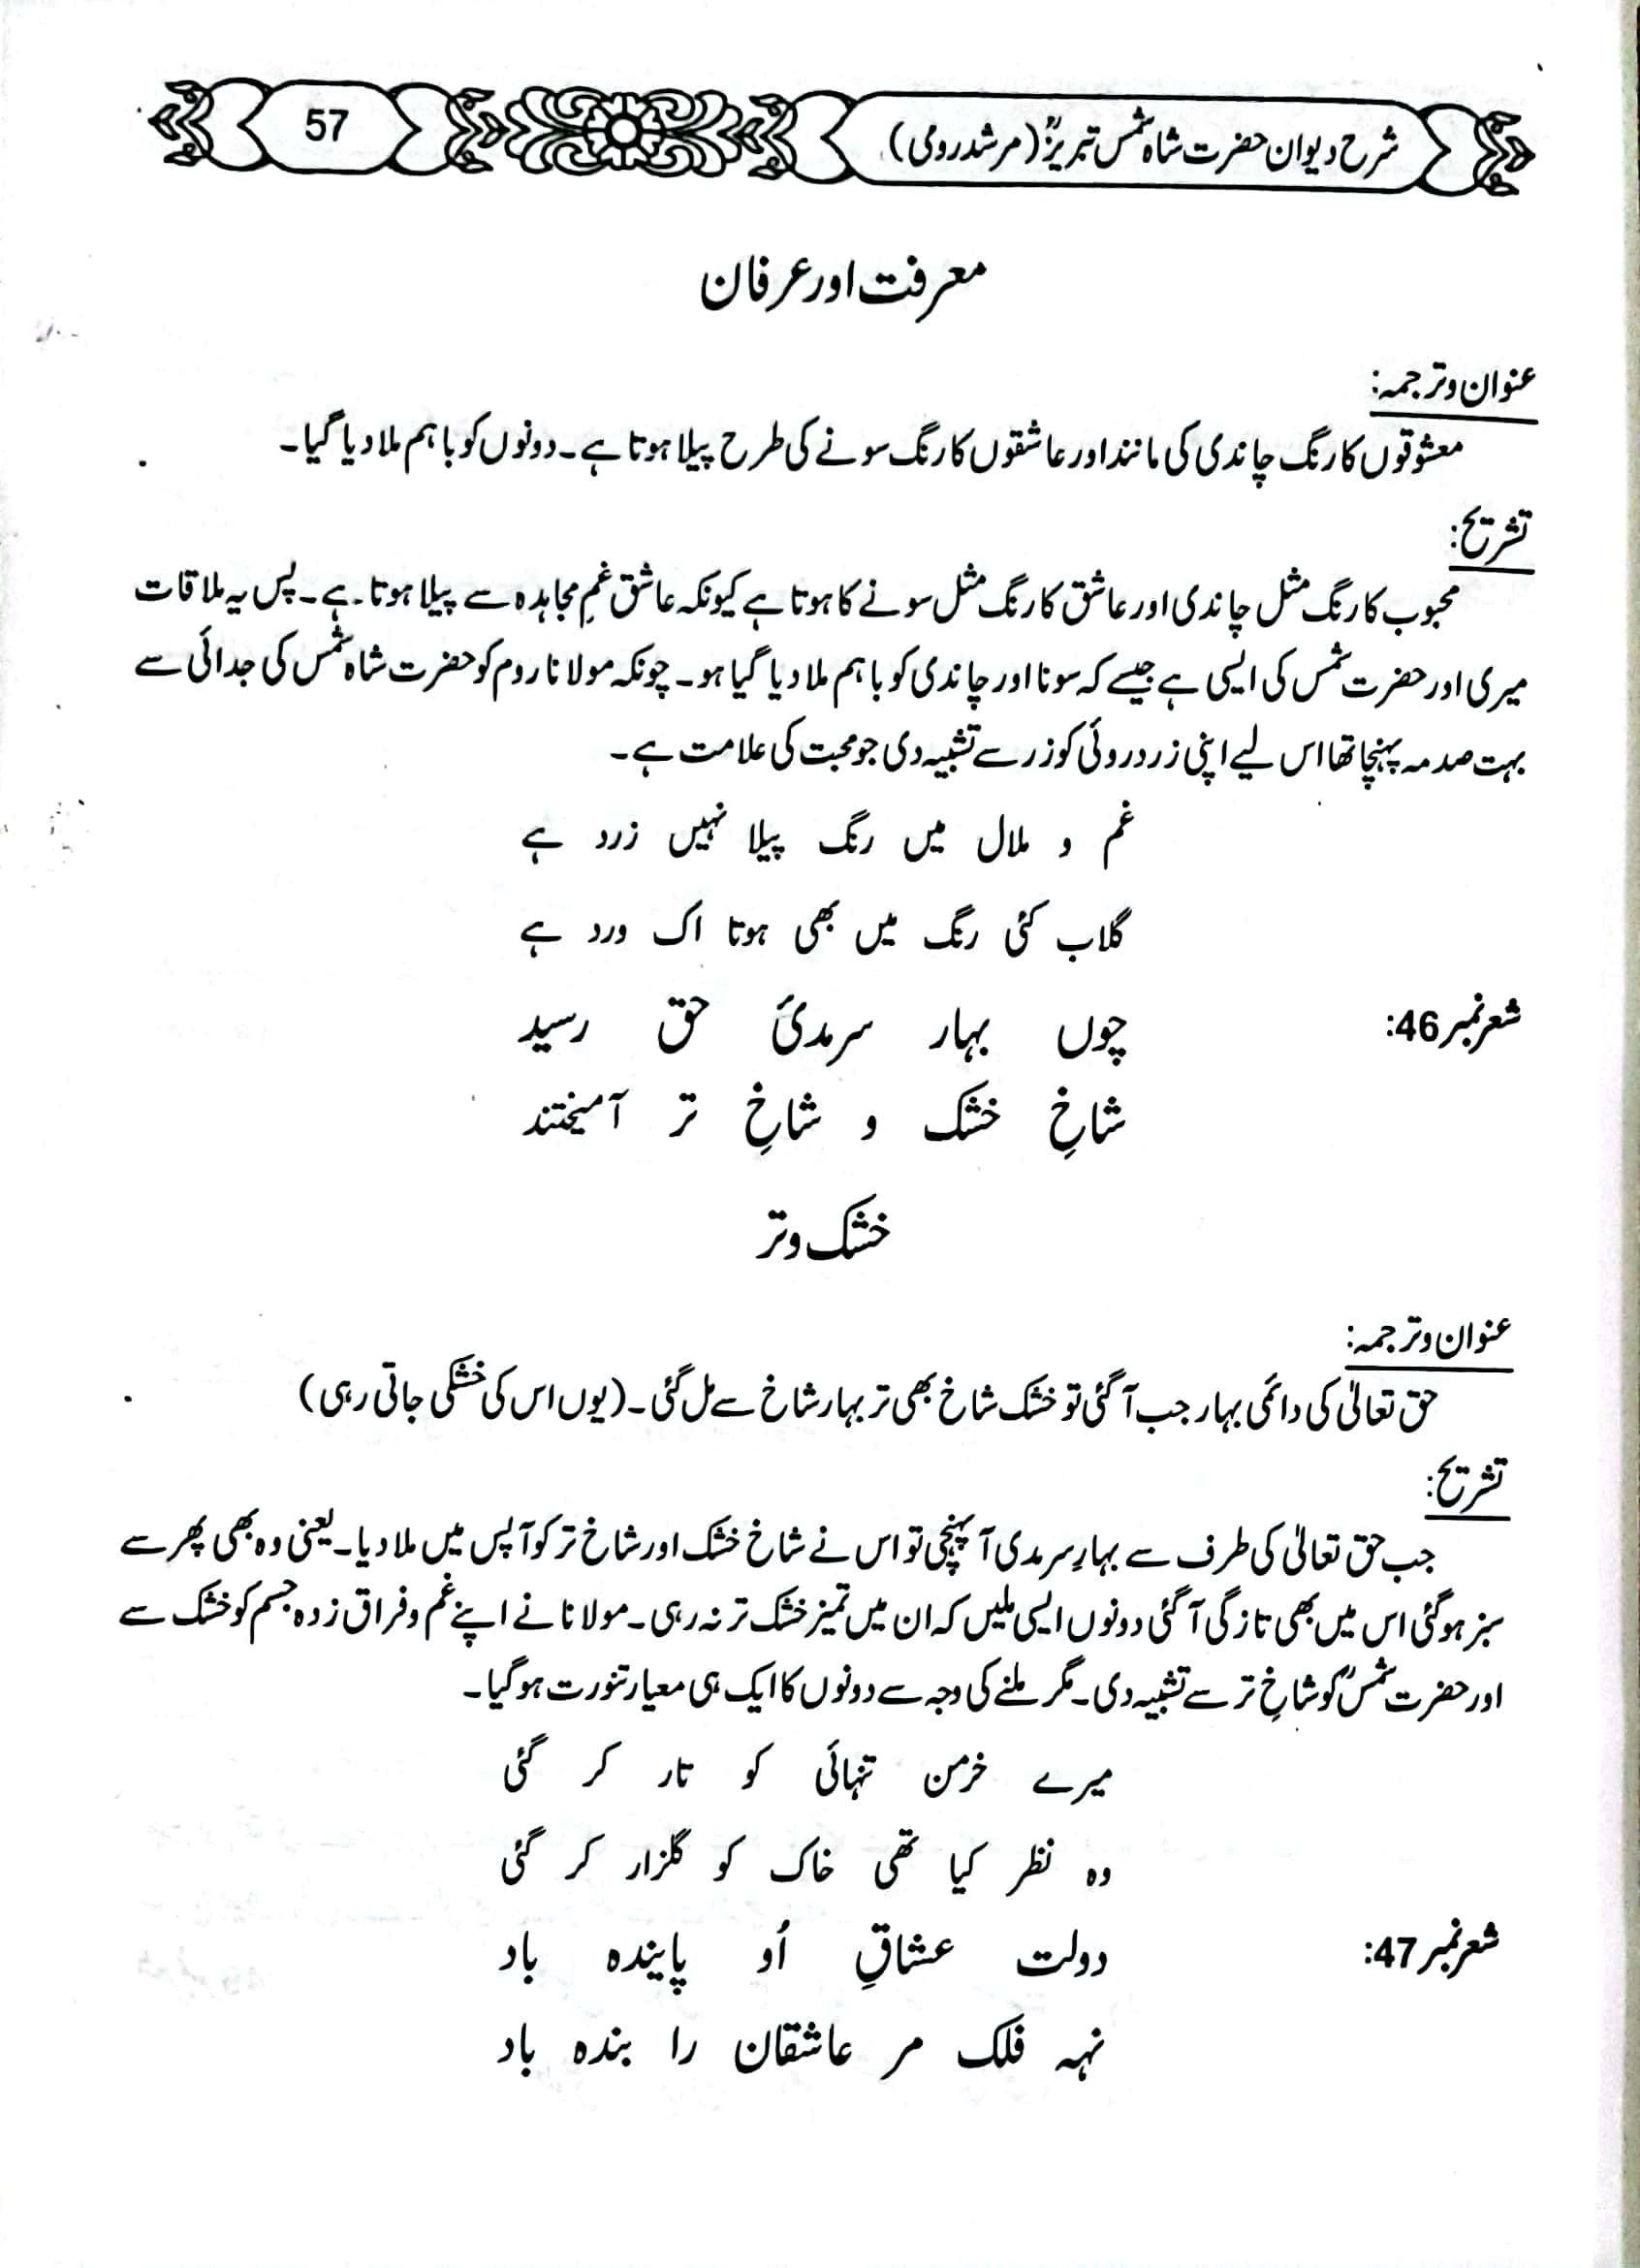 شرح دیوان حضرت شاہ شمس تبریزؒ (مرشد رومی)
57
معرفت اور عرفان
عنوان و ترجمہ:
معشوقوں کا رنگ چاندی کی مانند اور عاشقوں کا رنگ سونے کی طرح پیلا ہوتا ہے۔ دونوں کو باہم ملا دیا گیا۔
تشریح:
محبوب کا رنگ مثل چاندی اور عاشق کا رنگ مثل سونے کا ہوتا ہے کیونکہ عاشق غمِ مجاہدہ سے پیلا ہوتا ہے۔ پس یہ ملاقات
میری اور حضرت شمس کی ایسی ہے جیسے کہ سونا اور چاندی کو باہم ملا دیا گیا ہو۔ چونکہ مولانا روم کو حضرت شاہ شمس کی جدائی سے
بہت صدمہ پہنچا تھا اس لیے اپنی زرد روئی کو زر سے تشبیہ دی جو محبت کی علامت ہے۔
غم و ملال میں رنگ پیلا نہیں زرد ہے
گلاب کئی رنگ میں بھی ہوتا اک ورد ہے
شعر نمبر 46:
چوں بہار سرمدیٔ حق رسید
شاخِ خشک و شاخِ تر آمیختند
خشک و تر
عنوان و ترجمہ:
حق تعالیٰ کی دائمی بہار جب آ گئی تو خشک شاخ بھی تر بہار شاخ سے مل گئی۔ (یوں اس کی خشکی جاتی رہی)
تشریح:
جب حق تعالیٰ کی طرف سے بہارِ سرمدی آ پہنچی تو اس نے شاخ خشک اور شاخ تر کو آپس میں ملا دیا۔ یعنی وہ بھی پھر سے
سبز ہو گئی اس میں بھی تازگی آ گئی دونوں ایسی ملیں کہ ان میں تمیز خشک تر نہ رہی۔ مولانا نے اپنے غم و فراق زدہ جسم کو خشک سے
اور حضرت شمسؒ کو شاخِ تر سے تشبیہ دی۔ مگر ملنے کی وجہ سے دونوں کا ایک ہی معیار تنورت ہو گیا۔
میرے خرمن تنہائی کو تار کر گئی
وہ نظر کیا تھی خاک کو گلزار کر گئی
شعر نمبر 47:
دولت عشاقِ اُو پایندہ باد
نہہ فلک مر عاشقان را بندہ باد